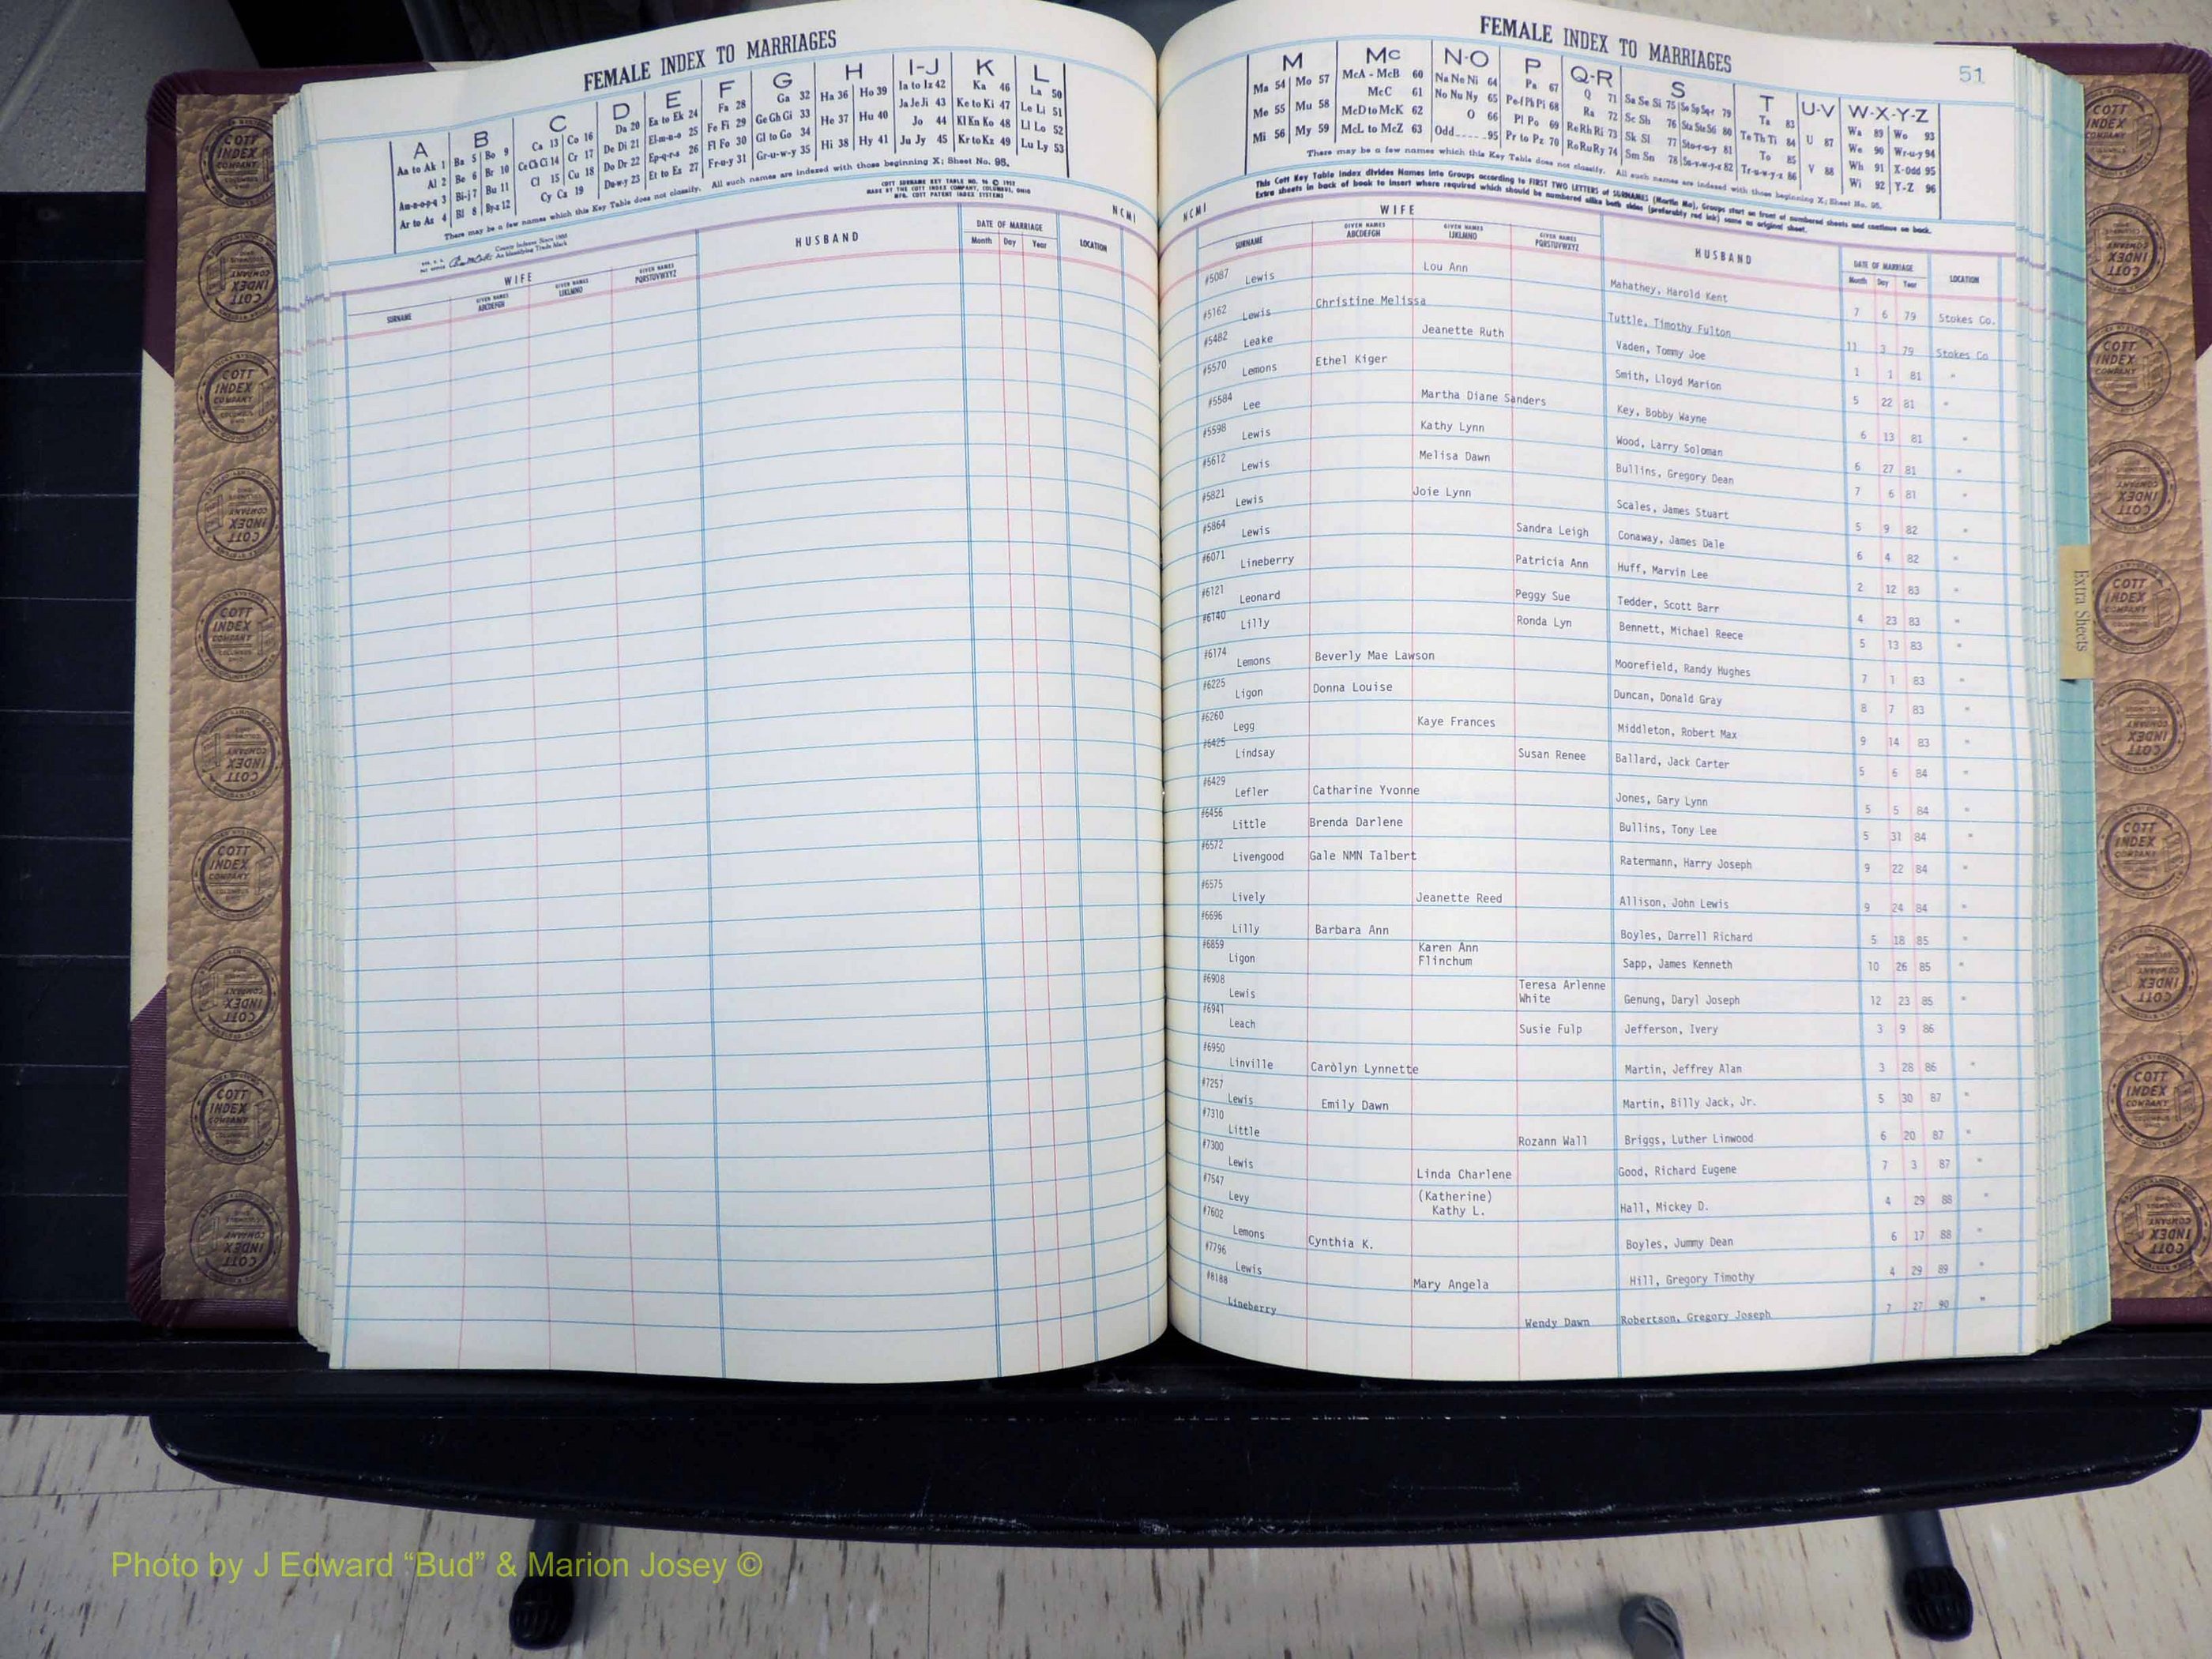 FEMALE INDEX TO MARRIAGES
A B C D E F G H I-J K L
Aa to Ak 1 Ba 5 Bo 9 Ca 13 Co 16 Da 20 Ea to Ek 24 Fa 28 Ga 32 Ha 36 Ho 39 Ia to Iz 42 Ka 46 La 50
Al 2 Be 6 Br 10 Ce Ch Ci 14 Cr 17 De Di 21 El-m-n-o 25 Fe Fi 29 Ge Gh Gi 33 He 37 Hu 40 Ja Je Ji 43 Ke to Ki 47 Le Li 51
Am-n-o-p-q 3 Bi-j 7 Bu 11 Cl 15 Cu 18 Do Dr 22 Ep-q-r-s 26 Fl Fo 30 Gl to Go 34 Hi 38 Hy 41 Jo 44 Kl Kn Ko 48 Ll Lo 52
Ar to Az 4 Bl 8 By-z 12 Cy Cz 19 Du-w-y 23 Et to Ez 27 Fr-u-y 31 Gr-u-w-y 35 Ju Jy 45 Kr to Kz 49 Lu Ly 53
There may be a few names which this Key Table does not classify. All such names are indexed with those beginning X; Sheet No. 95.
COTT SURNAME KEY TABLE NO. 96 © 1952
MADE BY THE COTT INDEX COMPANY, COLUMBUS, OHIO
MFG. COTT PATENT INDEX SYSTEMS
County Indexes Since 1888
An Identifying Trade Mark
NCMI
WIFE HUSBAND DATE OF MARRIAGE LOCATION
SURNAME GIVEN NAMES ABCDEFGH GIVEN NAMES IJKLMNO GIVEN NAMES PQRSTUVWXYZ Month Day Year
FEMALE INDEX TO MARRIAGES
51
M Mc N-O P Q-R S T U-V W-X-Y-Z
Ma 54 Mo 57 McA - McB 60 Na Ne Ni 64 Pa 67 Q 71 Sa Se Si 75 So Sp Sq-r 79 Ta 83 Wa 89 Wo 93
Me 55 Mu 58 McC 61 No Nu Ny 65 Pe-f Ph Pi 68 Ra 72 Sc Sh 76 Sta Ste Sti 80 Te Th Ti 84 U 87 We 90 Wr-u-y 94
Mi 56 My 59 McD to McK 62 O 66 Pl Po 69 Re Rh Ri 73 Sk Sl 77 Sto-r-u-y 81 To 85 Wh 91 X-Odd 95
McL to McZ 63 Odd 95 Pr to Pz 70 Ro Ru Ry 74 Sm Sn 78 Su-v-w-y-z 82 Tr-u-w-y-z 86 V 88 Wi 92 Y-Z 96
There may be a few names which this Key Table does not classify. All such names are indexed with those beginning X; Sheet No. 95.
This Cott Key Table Index divides Names into Groups according to FIRST TWO LETTERS of SURNAMES (Martin Ma), Groups start on front of numbered sheets and continue on back.
Extra sheets in back of book to insert where required which should be numbered alike both sides (preferably red ink) same as original sheet.
NCMI
WIFE HUSBAND DATE OF MARRIAGE LOCATION
SURNAME GIVEN NAMES ABCDEFGH GIVEN NAMES IJKLMNO GIVEN NAMES PQRSTUVWXYZ Month Day Year
#5087 Lewis Lou Ann Mahathey, Harold Kent 7 6 79 Stokes Co.
#5162 Lewis Christine Melissa Tuttle, Timothy Fulton 11 3 79 Stokes Co
#5482 Leake Jeanette Ruth Vaden, Tommy Joe 1 1 81 "
#5570 Lemons Ethel Kiger Smith, Lloyd Marion 5 22 81 "
#5584 Lee Martha Diane Sanders Key, Bobby Wayne 6 13 81 "
#5598 Lewis Kathy Lynn Wood, Larry Soloman 6 27 81 "
#5612 Lewis Melisa Dawn Bullins, Gregory Dean 7 6 81 "
#5821 Lewis Joie Lynn Scales, James Stuart 5 9 82 "
#5864 Lewis Sandra Leigh Conaway, James Dale 6 4 82 "
#6071 Lineberry Patricia Ann Huff, Marvin Lee 2 12 83 "
#6121 Leonard Peggy Sue Tedder, Scott Barr 4 23 83 "
#6140 Lilly Ronda Lyn Bennett, Michael Reece 5 13 83 "
#6174 Lemons Beverly Mae Lawson Moorefield, Randy Hughes 7 1 83 "
#6225 Ligon Donna Louise Duncan, Donald Gray 8 7 83 "
#6260 Legg Kaye Frances Middleton, Robert Max 9 14 83 "
#6425 Lindsay Susan Renee Ballard, Jack Carter 5 6 84 "
#6429 Lefler Catharine Yvonne Jones, Gary Lynn 5 5 84 "
#6456 Little Brenda Darlene Bullins, Tony Lee 5 31 84 "
#6572 Livengood Gale NMN Talbert Ratermann, Harry Joseph 9 22 84 "
#6575 Lively Jeanette Reed Allison, John Lewis 9 24 84 "
#6696 Lilly Barbara Ann Boyles, Darrell Richard 5 18 85 "
#6859 Ligon Karen Ann Flinchum Sapp, James Kenneth 10 26 85 "
#6908 Lewis Teresa Arlenne White Genung, Daryl Joseph 12 23 85 "
#6941 Leach Susie Fulp Jefferson, Ivery 3 9 86
#6950 Linville Carolyn Lynnette Martin, Jeffrey Alan 3 28 86 "
#7257 Lewis Emily Dawn Martin, Billy Jack, Jr. 5 30 87 "
#7310 Little Rozann Wall Briggs, Luther Linwood 6 20 87 "
#7300 Lewis Linda Charlene Good, Richard Eugene 7 3 87 "
#7547 Levy (Katherine) Kathy L. Hall, Mickey D. 4 29 88 "
#7602 Lemons Cynthia K. Boyles, Jummy Dean 6 17 88 "
#7796 Lewis Mary Angela Hill, Gregory Timothy 4 29 89 "
#8188 Lineberry Wendy Dawn Robertson, Gregory Joseph 7 27 90 "
Extra Sheets
COTT INDEX COMPANY
Photo by J Edward “Bud” & Marion Josey ©